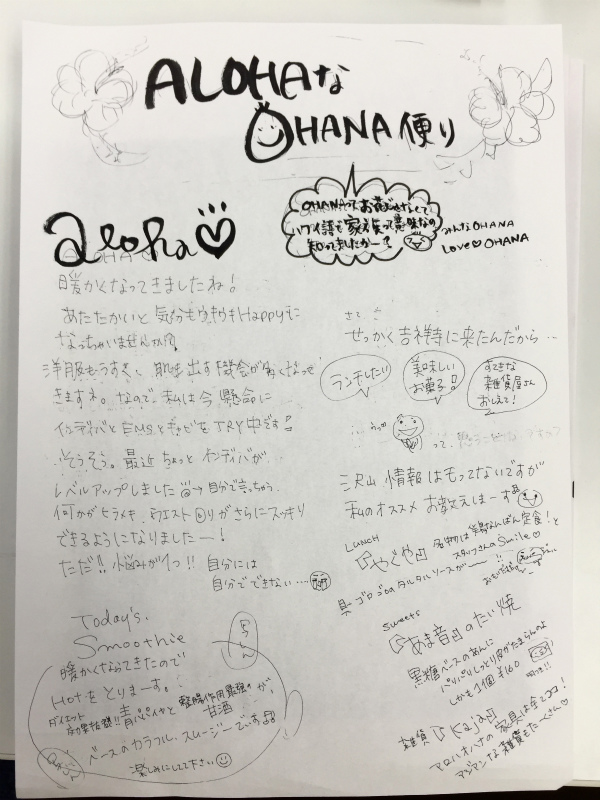 ALOHAな
OHANA便り
OHANAってお花じゃなくて
ハワイ語で家族って意味なの
知ってましたかー?
みんなOHANA
LOVE♡OHANA
aloha♡
暖かくなってきましたね!
あたたかいと気分もウキウキHappyに
なっちゃいませんか?
洋服もうすく、肌を出す機会が多くなって
きますネ。なので、私は今懸命に
インディバとEMSとキャビをTRY中です!
そうそう。最近ちょっとインディバが
レベルアップしました 自分で言っちゃう
何かがヒラメキ、ウエスト回りがさらにスッキリ
できるようになりましたー!
ただ!!悩みが1つ!! 自分には
自分でできない…
Today's
Smoothie
暖かくなってきたので
Hotをとりまーす。
ダイエット
効果抜群!!青パパイヤと整腸作用最強が、
甘酒
ベースのカラフルスムージーですよ
楽しみにしてて下さい
さてさて
せっかく吉祥寺に来たんだから…
ランチしたい!
美味しい
お菓子!
すてきな
雑貨屋さん
おしえて!
って、
沢山情報はもってないですが
私のオススメお教えしまーす
LUNCH
やぐや 名物は鶏なんばん定食!と
スタッフさんのSmile♡
具ゴロゴロのタルタルソースがー!!
sweets
あま音のたい焼
黒糖ベースのあんに
パリパリしっとり皮がたまらんのよ
しかも1個¥160
雑貨 Kaja
アロハオハナの家具は全てココ!
アジアンな雑貨もたーくさん♡